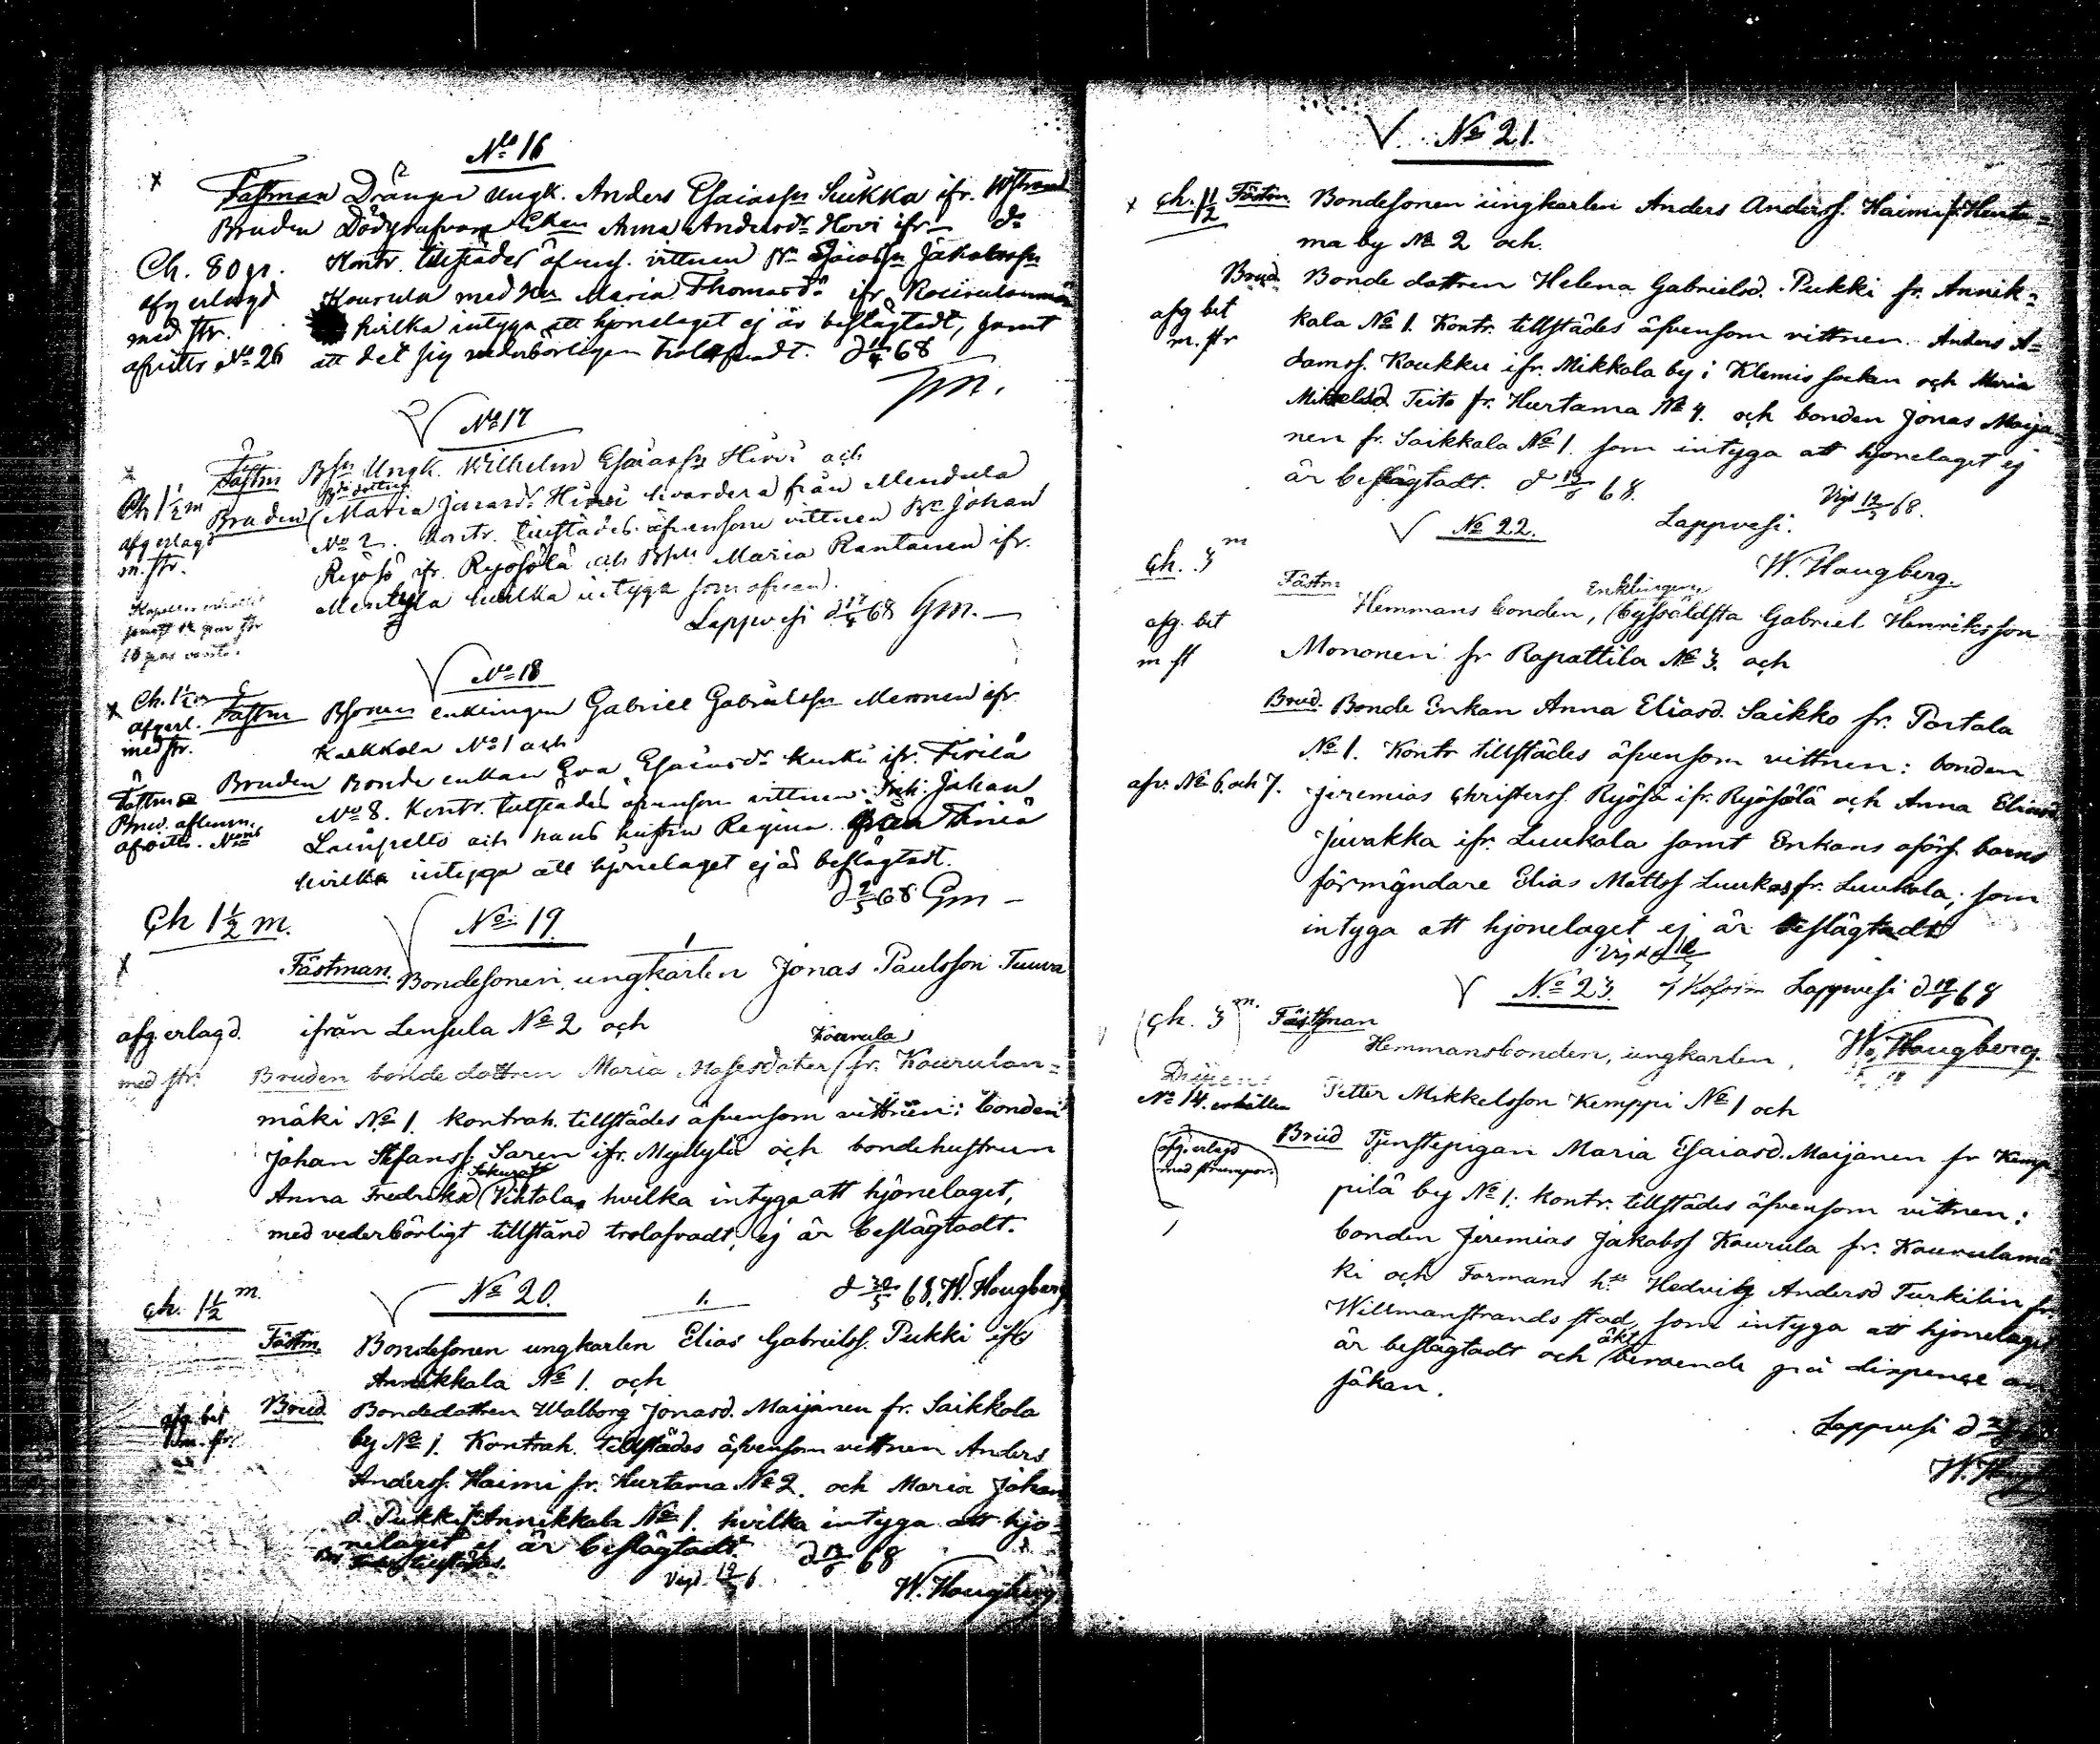 No 16
x Fästman Drängen Ungk. Anders Esaiasson Sukka ifr.
Bruden Anna Andersdr Hovi ifr. do
Ch. 80 pr. Kontr. tillstädes äfvens. vittnen Jakobsson
afg erlagd Kourula med Maria Thomasdr ifr. Kourulanmäki
med str. hvilka intyga att hjonelaget ej är beslägtadt, samt
afvittr No 26 att det sig vederbörligen trolofvadt. d 68
Gm.
No 17
x Fästm Bsn Ungk. Wilhelm Esaiasson Hinsi och
Bde dottren
Ch 1 1/2 m Bruden (Maria Jonasdr Hinsi hvardera från Mendula
afg erlagd No 2. Kontr. tillstädes äfvensom vittnen Bn Johan
m. str. Rejösö ifr. Rejösölä och Maria Rantanen ifr.
Mentylä hvilka intyga som ofvan.
Lappvesi d 17/4 68 Gm.
No 18
x Ch. 1 1/2 m
afg erl. Fästm Bsonen enklingen Gabriel Gabrielsson Mennen ifr.
med str. Kaekkola No 1 och
Bruden Bonde enkan Eva Esaiasdr Kurki ifr. Tirilä
No 8. Kontr. tillstädes äfvensom vittnen: Johan
Lainpelto och hans hustru Regina från Tirilä
hvilka intyga att hjonelaget ej är beslägtadt.
d 2/5 68 Gm
Ch 1 1/2 m. No 19. 1
x Fästman. Bondesonen, ungkarlen Jonas Paulsson Tuuva
afg. erlagd. ifrån Lensula No 2 och
Kourula
med str. Bruden bonde dottren Maria Mosesdoter (fr. Kourulan=
mäki No 1. kontrah. tillstädes äfvensom vittnen: bonden
Johan Stefanss. Saren ifr. Myllylä och bondehustrun
Anna Fredriksd (Vihtola, hvilka intyga att hjonelaget,
med vederbörligt tillstånd trolofvadt, ej är beslägtadt.
Ch. 1 1/2 m. No 20. 1. d 30/5 68. W. Hougberg
Fästm. Bondesonen ungkarlen Elias Gabrielss. Pukki ifr.
Annikkala No 1. och
afg. bet Brud. Bondedottren Walborg Jonasd. Maijanen fr. Saikkola
m. str. by No 1. Kontrah. tillstädes äfvensom vittnen Anders
Anderss. Haimi fr. Hurtama No 2. och Maria Johan
d. Pukki fr Annikkala No 1. hvilka intyga att hjo-
nelaget ej är beslägtadt.
d 13/6 68
W. Hougberg
No 21.
x Ch. 1 1/2 Fästm. Bondesonen ungkarlen Anders Anderss. Haimi fr. Hurta=
ma by No 2 och.
Brud. Bonde dottren Helena Gabrielsd. Pukki fr. Annik=
afg bet kala No 1. Kontr. tillstädes äfvensom vittnen. Anders A=
m. str damss. Koukku ifr. Mikkola by i Klemis socken och Maria
Mikkelsd. Teito fr. Hurtama No 4. och bonden Jonas Maija=
nen fr. Saikkala No 1. som intyga att hjonelaget ej
är beslägtadt. d 13/6 68.
Lappvesi.
W. Hougberg.
No 22.
Ch. 3 m
Enklingen
Fästm: Hemmans bonden, (bysväldsta Gabriel Henriksson
afg. bet
m st Mononen fr Rapattila No 3. och
Brud. Bonde Enkan Anna Eliasd. Saikko fr. Portala
No 1. Kontr tillstädes äfvensom vittnen: bonden
afv. No 6, och 7. Jeremias Christerss. Ryösä ifr. Ryösölä och Anna Eliasd
Juvakka ifr. Luukala samt Enkans oförs. barns
förmyndare Elias Mattss Luukas fr. Luukala; som
intyga att hjonelaget ej är beslägtadt
Lappvesi d 68
W. Hougberg.
No 23.
Ch. 3 m. Fästman
Hemmansbonden, ungkarlen,
No 14. erhållen Petter Mikkelsson Kemppi No 1 och
afg. erlagd
med strumpor. Brud Tjenstepigan Maria Esaiasd. Maijanen fr Kemp
pilä by No 1: kontr. tillstädes äfvensom vittnen:
bonden Jeremias Jakobss Kourula fr. Kourulamä
ki och Formans h:st Hedvig Andersd Turkilin fr.
Willmanstrands stad, som intyga att hjonelaget
är beslägtadt och beroende på dispence an
sökan.
Lappvesi d